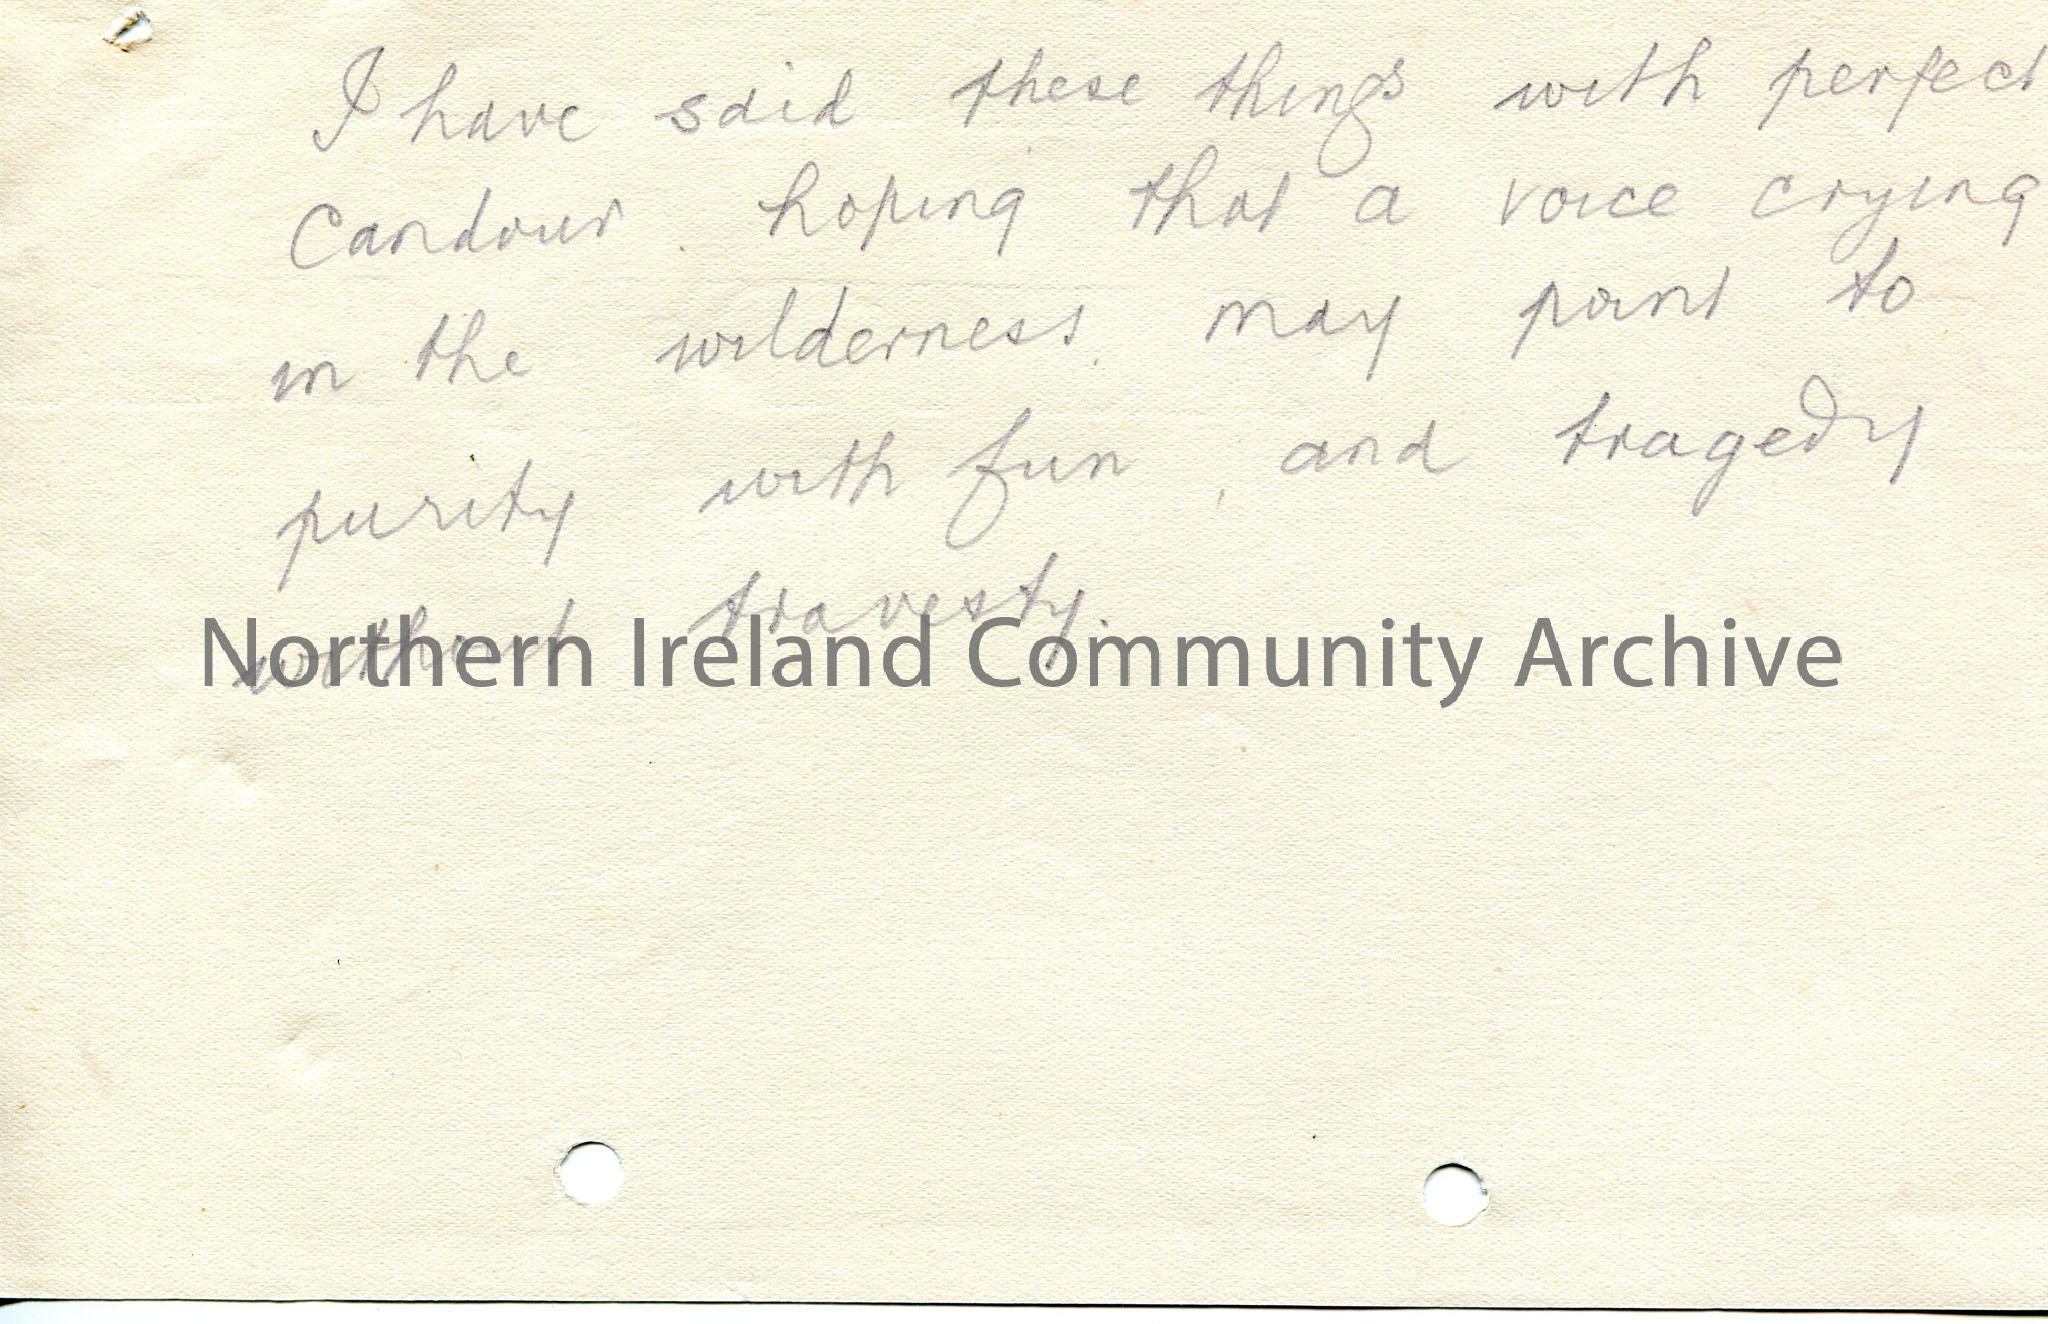 I have said these things with perfect
Candour hoping that a voice crying
in the wilderness may point to
purity with fun, and tragedy
without travesty.
Northern Ireland Community Archive